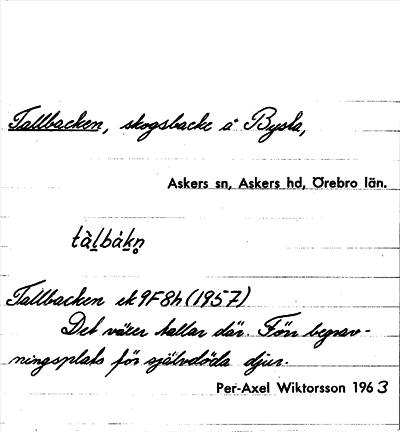 Tallbacken, skogsbacke å Bysta,
Askers sn, Askers hd, Örebro län.
tàḷbàkn̥
Tallbacken ek 9F8h (1957)
Det växer tallar där. Förr begrav-
ningsplats för självdöda djur.
Per-Axel Wiktorsson 1963